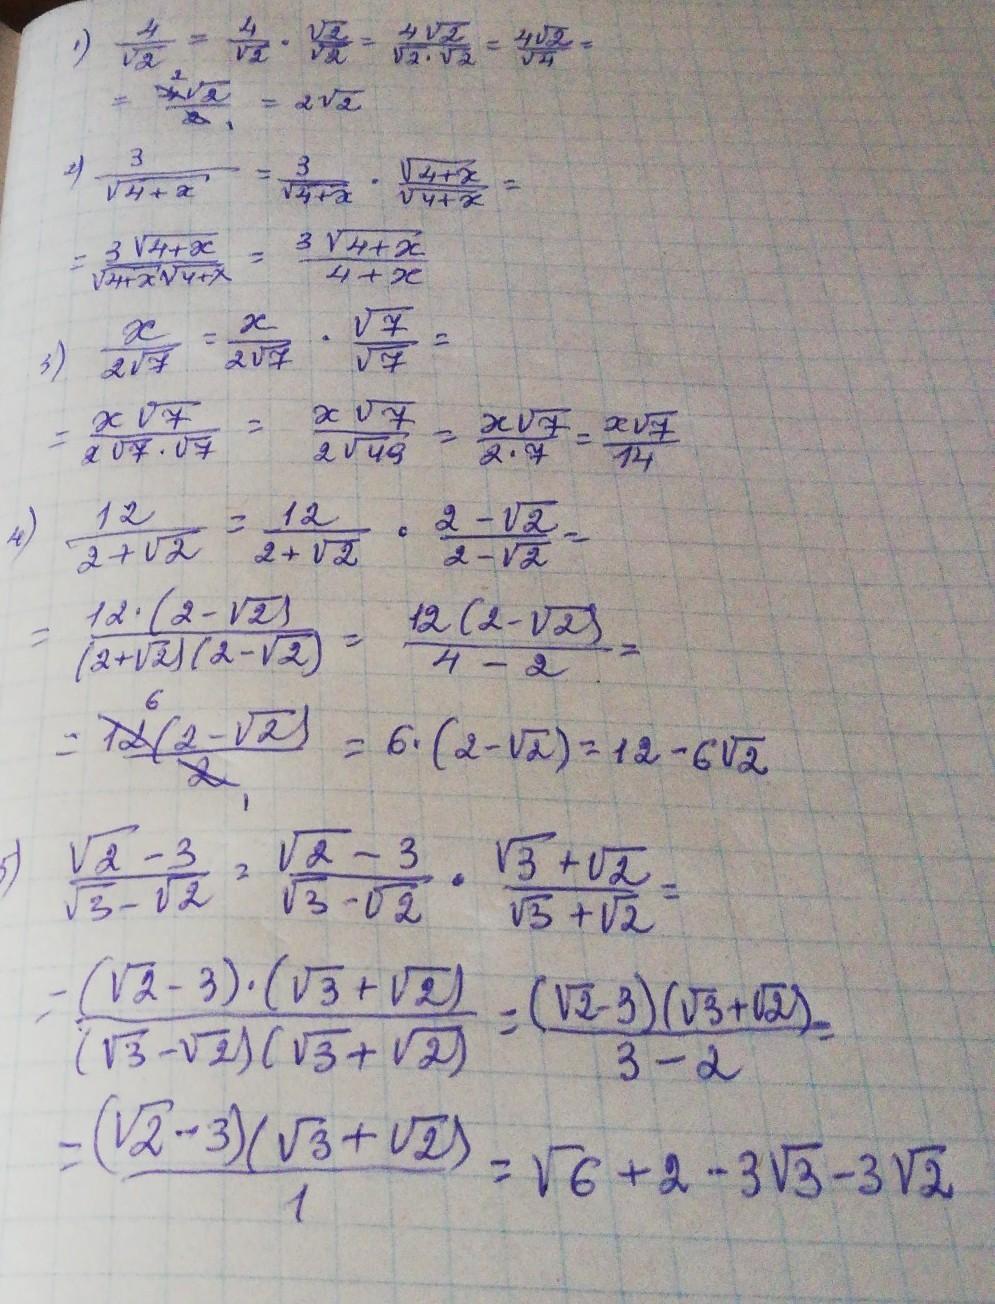 1) 4/√2 = 4/√2 · √2/√2 = 4√2/√2·√2 = 4√2/√4 =
= 4√2/2 = 2√2
2) 3/√4+x = 3/√4+x · √4+x/√4+x =
= 3√4+x/√4+x√4+x = 3√4+x/4+x
3) x/2√7 = x/2√7 · √7/√7 =
= x√7/2√7·√7 = x√7/2√49 = x√7/2·7 = x√7/14
4) 12/2+√2 = 12/2+√2 · 2-√2/2-√2 =
= 12·(2-√2)/(2+√2)(2-√2) = 12(2-√2)/4-2 =
= 12(2-√2)/2 = 6·(2-√2) = 12-6√2
5) √2-3/√3-√2 = √2-3/√3-√2 · √3+√2/√3+√2 =
= (√2-3)·(√3+√2)/(√3-√2)(√3+√2) = (√2-3)(√3+√2)/3-2 =
= (√2-3)(√3+√2)/1 = √6+2-3√3-3√2